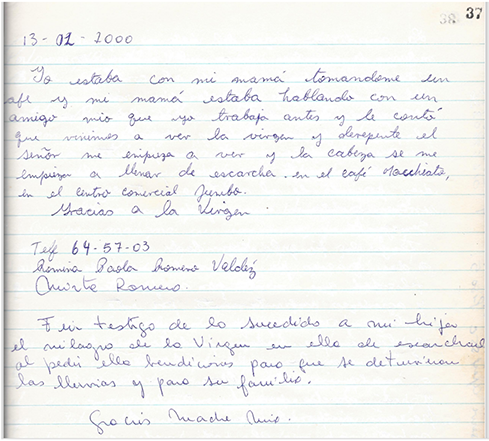 38 37
13-02-2000
Yo estaba con mi mamá tomandome un
afe y mi mamá estaba hablando con un
amigo mio que yo trabaja antes y le contó
que vinimos a ver la virgen y derepente el
señor me empieza a ver y la cabeza se me
empieza a llenar de escarcha. en el café Macchiato,
en el centro comercial Jumbo.
Gracias a la Virgen.
Telf 64-57-03
Romina Paola Romero Valdéz
Romero.
Fui testigo de lo sucedido a mi hija
el milagro de la Virgen en ella de
al pedir ella bendiciones para que se detuvieran
las lluvias y para su familia.
Gracias Madre Mia.